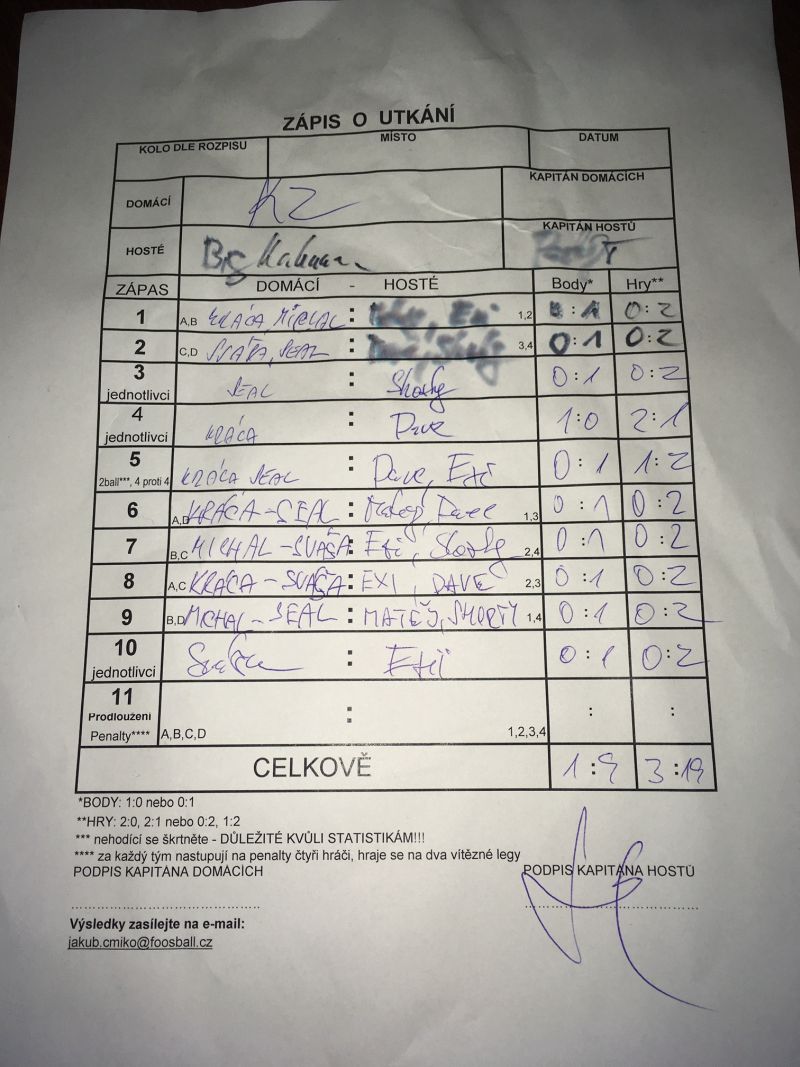 ZÁPIS O UTKÁNÍ
KOLO DLE ROZPISU MÍSTO DATUM
DOMÁCÍ KZ KAPITÁN DOMÁCÍCH
HOSTÉ KAPITÁN HOSTŮ
ZÁPAS DOMÁCÍ - HOSTÉ Body* Hry**
1 A,B KRÁCA, MICHAL : 1,2 0:2
2 C,D SVÁŠA, SEAL : 3,4 0:1 0:2
3 jednotlivci SEAL : Shorty 0:1 0:2
4 jednotlivci KRÁCA : Dave 1:0 2:1
5 2ball***, 4 proti 4 KRÁCA SEAL : Dave, Exi 0:1 1:2
6 A,D KRÁCA-SEAL : Matěj, Dave 1,3 0:1 0:2
7 B,C MICHAL-SVAŠA : Exi, Shorty 2,4 0:1 0:2
8 A,C KRÁCA-SVAŠA : EXI, DAVE 2,3 0:1 0:2
9 B,D MICHAL-SEAL : MATĚJ, SHORTY 1,4 0:1 0:2
10 jednotlivci : 0:1 0:2
11 Prodloužení Penalty**** A,B,C,D : 1,2,3,4 : :
CELKOVĚ 1:9 3:19
*BODY: 1:0 nebo 0:1
**HRY: 2:0, 2:1 nebo 0:2, 1:2
*** nehodící se škrtněte - DŮLEŽITÉ KVŮLI STATISTIKÁM!!!
**** za každý tým nastupují na penalty čtyři hráči, hraje se na dva vítězné legy
PODPIS KAPITÁNA DOMÁCÍCH PODPIS KAPITÁNA HOSTŮ
Výsledky zasílejte na e-mail:
jakub.cmiko@foosball.cz